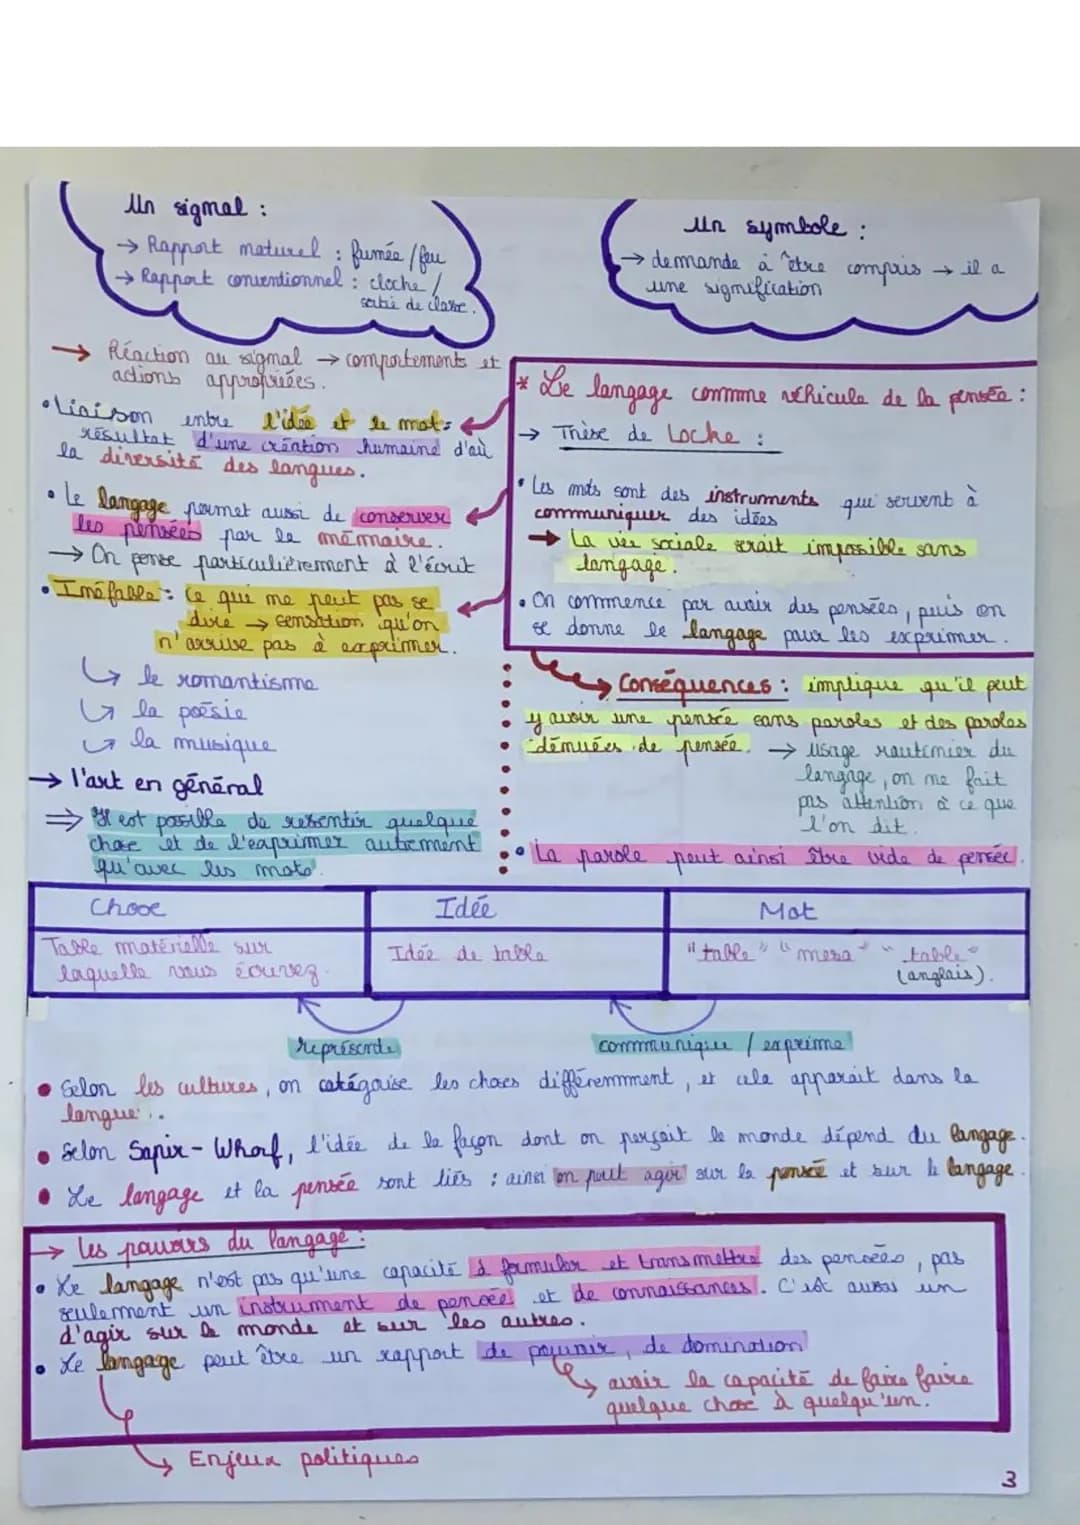 Un signal :
→ Rapport naturel : fumée / feu
→ Rapport conventionnel : cloche /
sortie de classe.
Un symbole :
→ demande à être compris → il a
une signification
→ Réaction au signal → comportements et
actions appropriées.
• Liaison entre l'idée et le mot :
résultat d'une création humaine d'où
la diversité des langues.
• Le langage permet aussi de conserver
les pensées par la mémoire.
→ On pense particulièrement à l'écrit
• Inéfable : ce que ne peut pas se
dire → sensation qu'on
n'arrive pas à exprimer.
↳ le romantisme
↳ la poésie
↳ la musique
→ l'art en général
⇒ Il est possible de ressentir quelque
chose et de l'exprimer autrement
qu'avec les mots.
* Le langage comme véhicule de la pensée :
→ Thèse de Locke :
• Les mots sont des instruments qui servent à
communiquer des idées
→ La vie sociale serait impossible sans
langage.
• On commence par avoir des pensées, puis on
se donne le langage pour les exprimer.
↳ Conséquences : implique qu'il peut
y avoir une pensée sans paroles et des paroles
dénuées de pensée. → Usage routinier du
langage, on ne fait
pas attention à ce que
l'on dit.
• La parole peut ainsi être vide de pensée.
Chose Idée Mot
Table matérielle sur
laquelle vous écrivez.
Idée de table
"table" "mesa" "table"
(anglais).
représente
communique / exprime
• Selon les cultures, on catégorise les choses différemment, et cela apparait dans la
langue...
• Selon Sapir-Whorf, l'idée de la façon dont on perçoit le monde dépend du langage.
• Le langage et la pensée sont liés : ainsi on peut agir sur la pensée et sur le langage.
→ Les pouvoirs du langage :
• Le langage n'est pas qu'une capacité à formuler et transmettre des pensées, pas
seulement un instrument de pensée et de connaissances. C'est aussi un
d'agir sur le monde et sur les autres.
• Le langage peut être un rapport de pouvoir, de domination
↳ avoir la capacité de faire faire
quelque chose à quelqu'un.
↳ Enjeux politiques
3